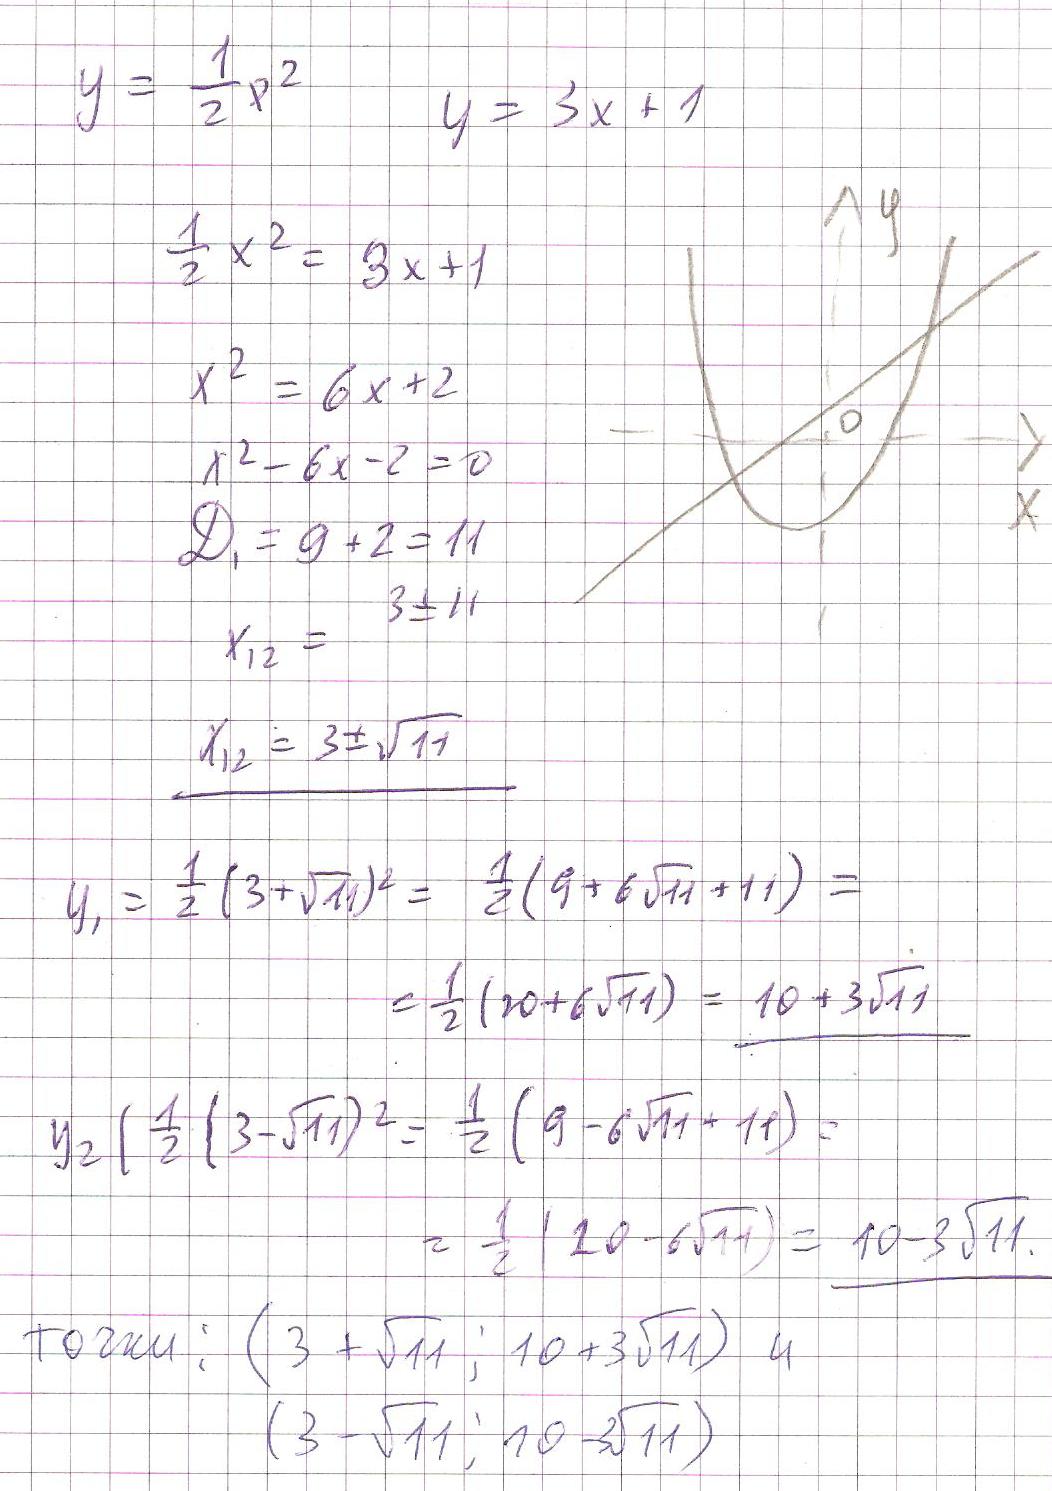 y = 1/2 x² y = 3x + 1
y
1/2 x² = 3x + 1
x² = 6x + 2
0
x² - 6x - 2 = 0
x
D₁ = 9 + 2 = 11
3 ± 11
x₁₂ =
x₁₂ = 3 ± √11
y₁ = 1/2 (3 + √11)² = 1/2 (9 + 6√11 + 11) =
= 1/2 (20 + 6√11) = 10 + 3√11
y₂ ( 1/2 (3 - √11)² = 1/2 (9 - 6√11 + 11) =
= 1/2 (20 - 6√11) = 10 - 3√11.
точки: (3 + √11; 10 + 3√11) и
(3 - √11; 10 - 3√11)